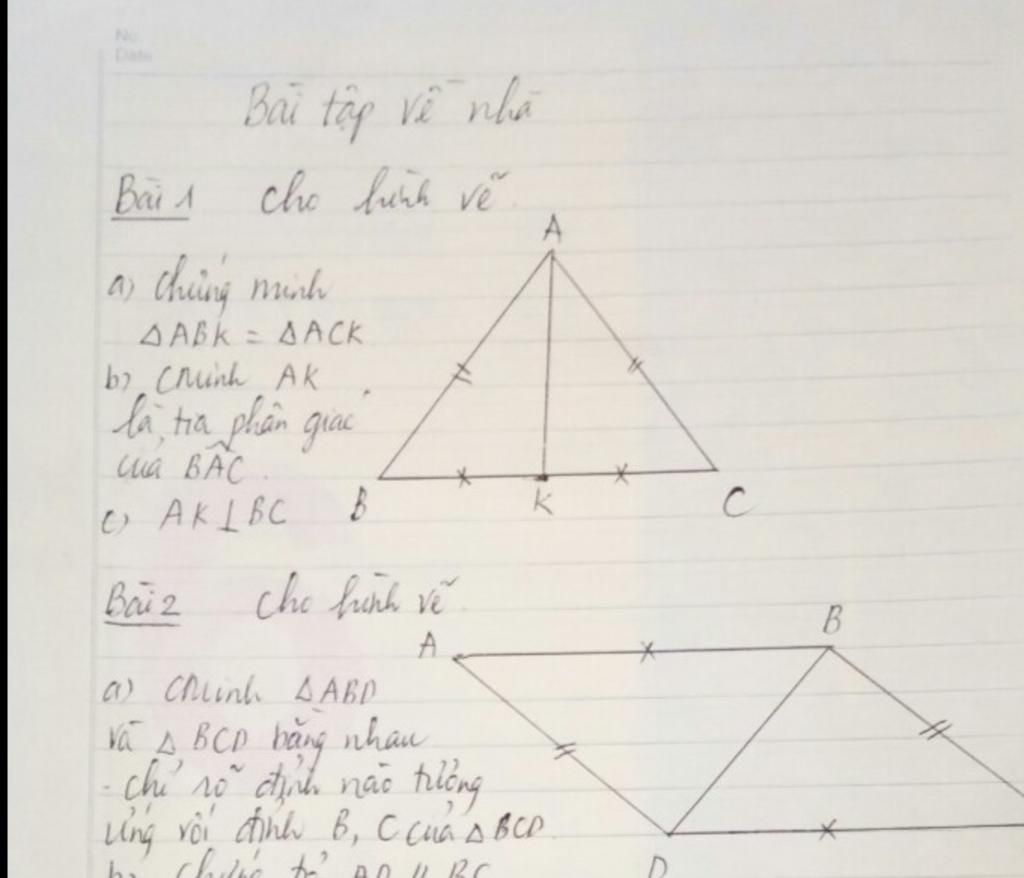 No.
Date
Bài tập về nhà
Bài 1 cho hình vẽ
A
a) chứng minh
ΔABK = ΔACK
b) CMinh AK
là tia phân giác
của BÂC.
c) AK⊥BC
B
K
C
Bài 2 cho hình vẽ
A
B
a) CMinh ΔABD
và Δ BCD bằng nhau
- chỉ rõ đỉnh nào tương
ứng với đỉnh B, C của ΔBCD
b) chứng tỏ AD // BC
D